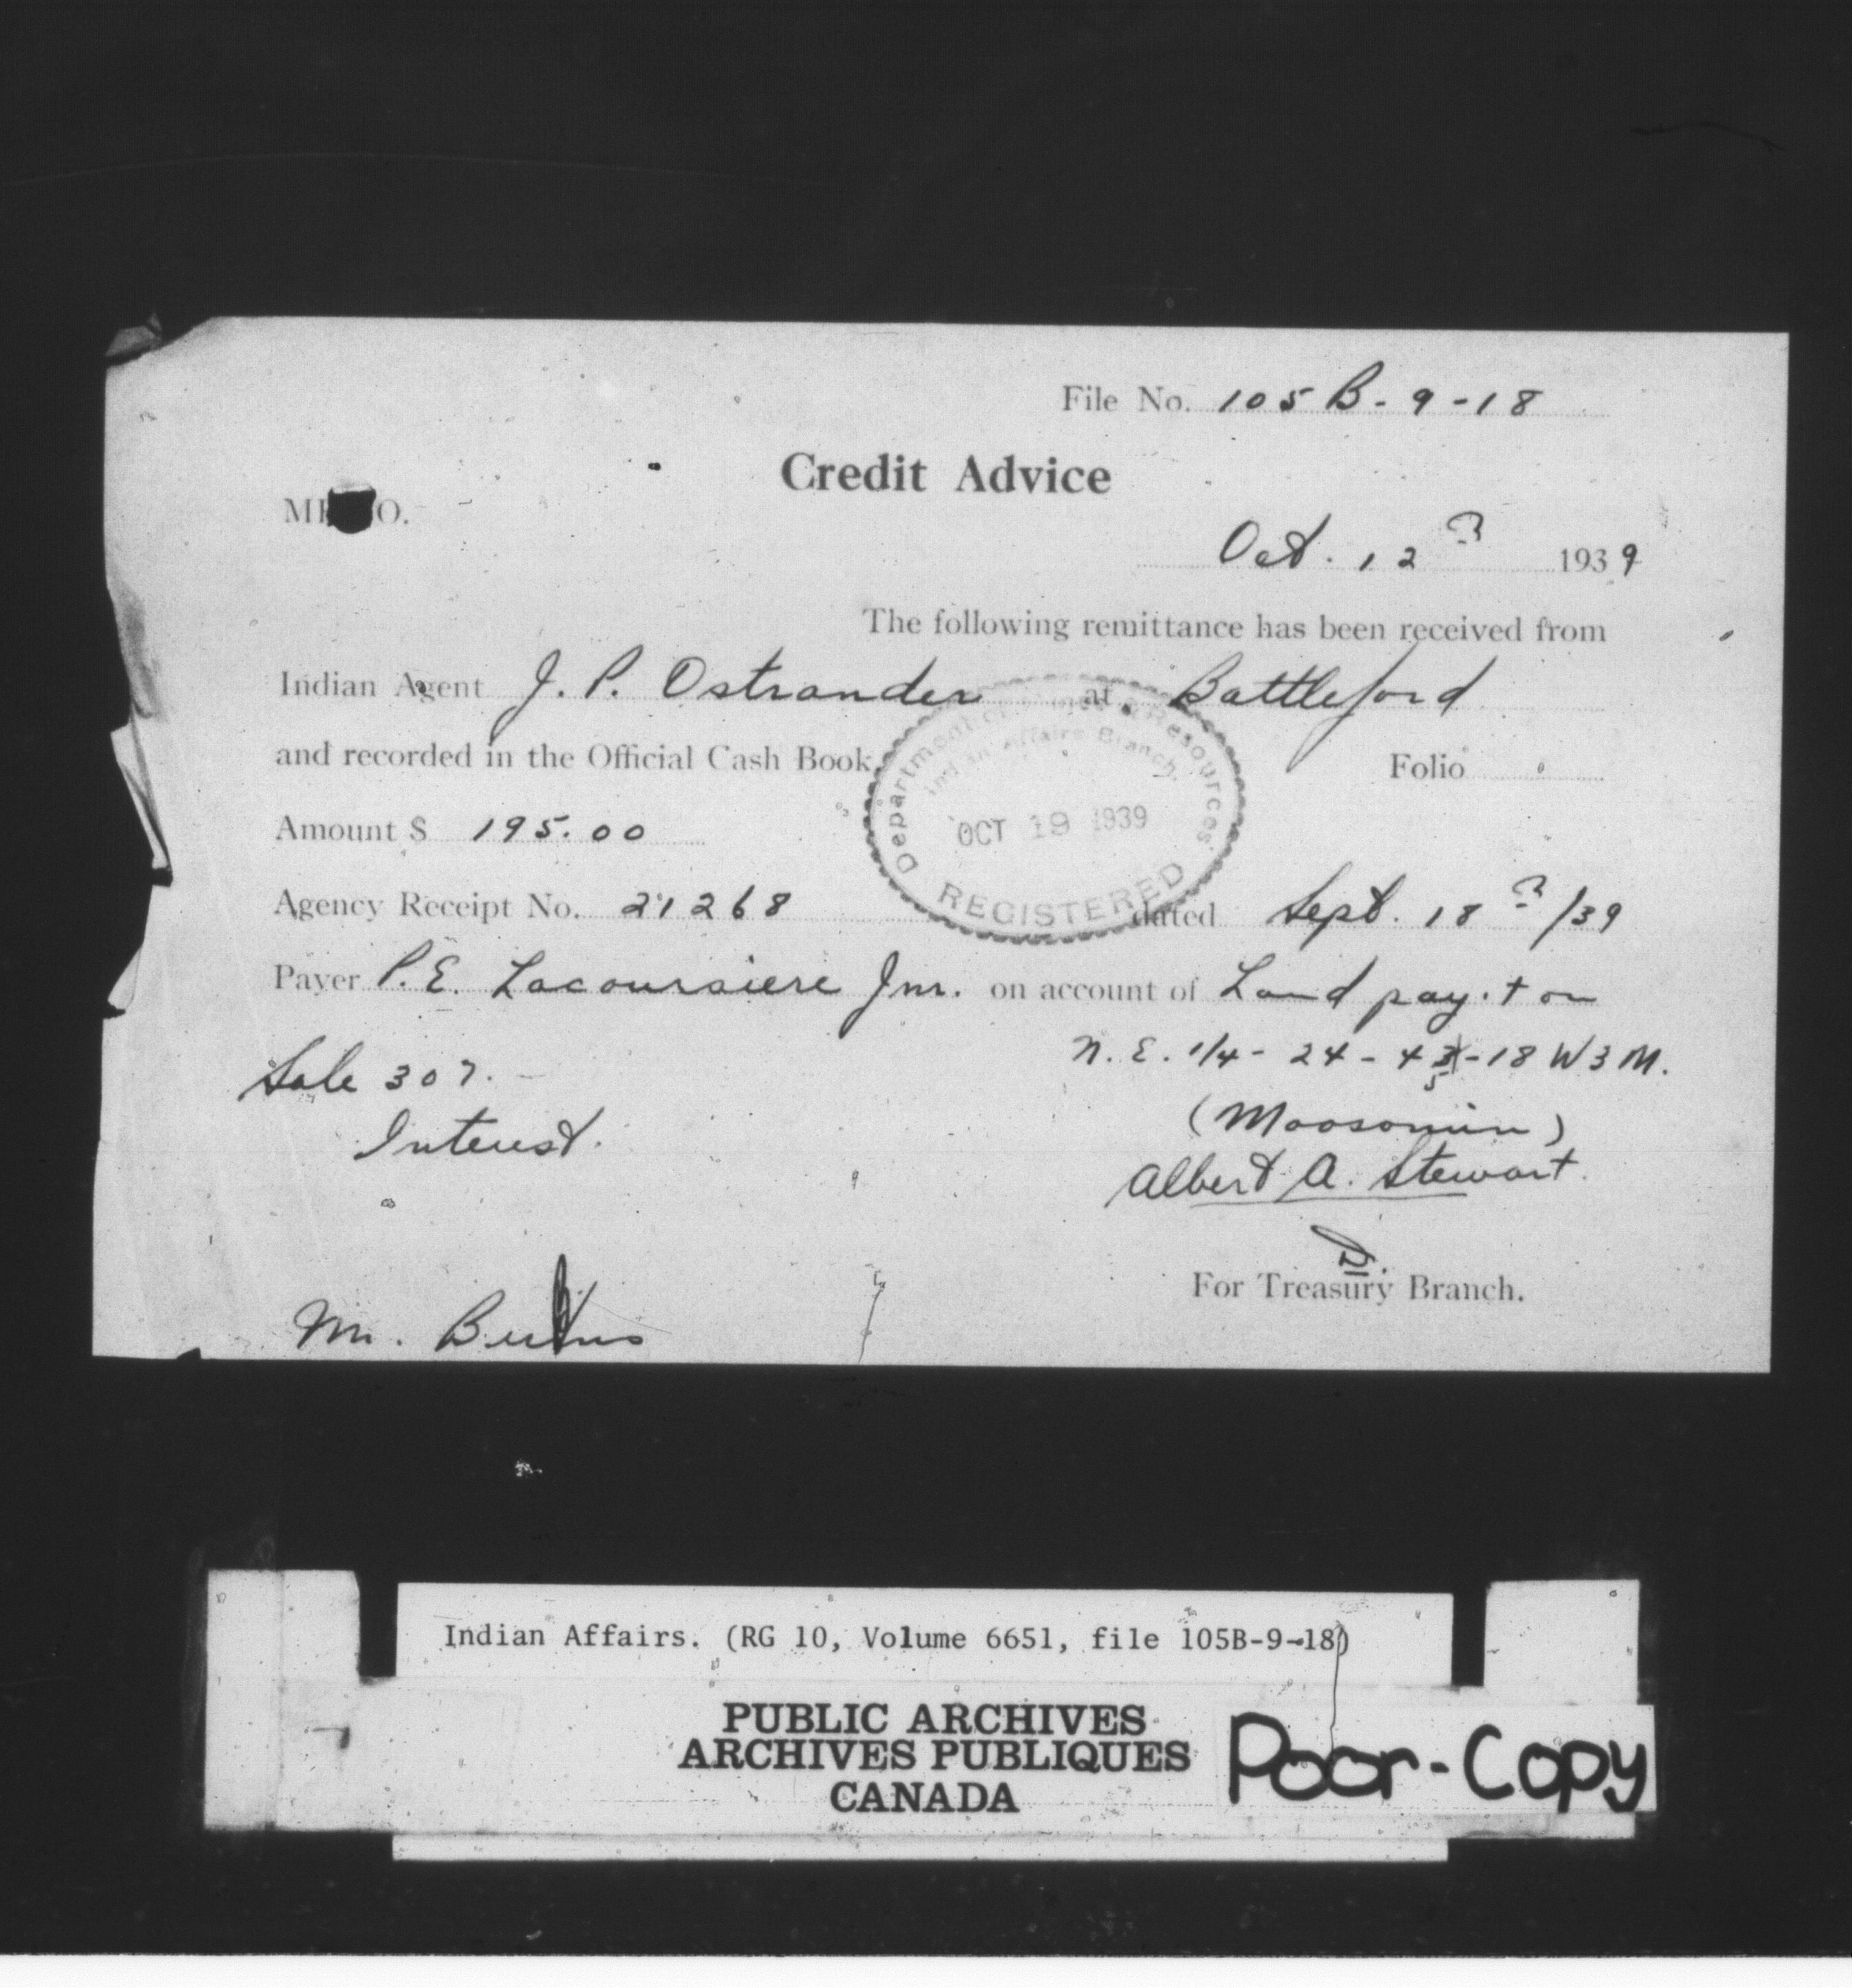 File No. 105 B-9-18
Credit Advice
MEMO.
Oct. 12 1939
The following remittance has been received from
Indian Agent J. P. Ostrander at Battleford
and recorded in the Official Cash Book, Folio
Department of Mines & Resources.
Indian Affairs Branch.
OCT 19 1939
REGISTERED
Amount $ 195.00
Agency Receipt No. 21268 dated Sept. 18 /39
Payer P.E. Lacoursiere Jnr. on account of Land pay.t on
Sale 307. N.E. 1/4 - 24 - 45 - 18 W3M.
Interest. (Moosomin)
Albert A. Stewart
D.
For Treasury Branch.
Mr.
Indian Affairs. (RG 10, Volume 6651, file 105B-9-18)
PUBLIC ARCHIVES
ARCHIVES PUBLIQUES
CANADA
Poor-Copy